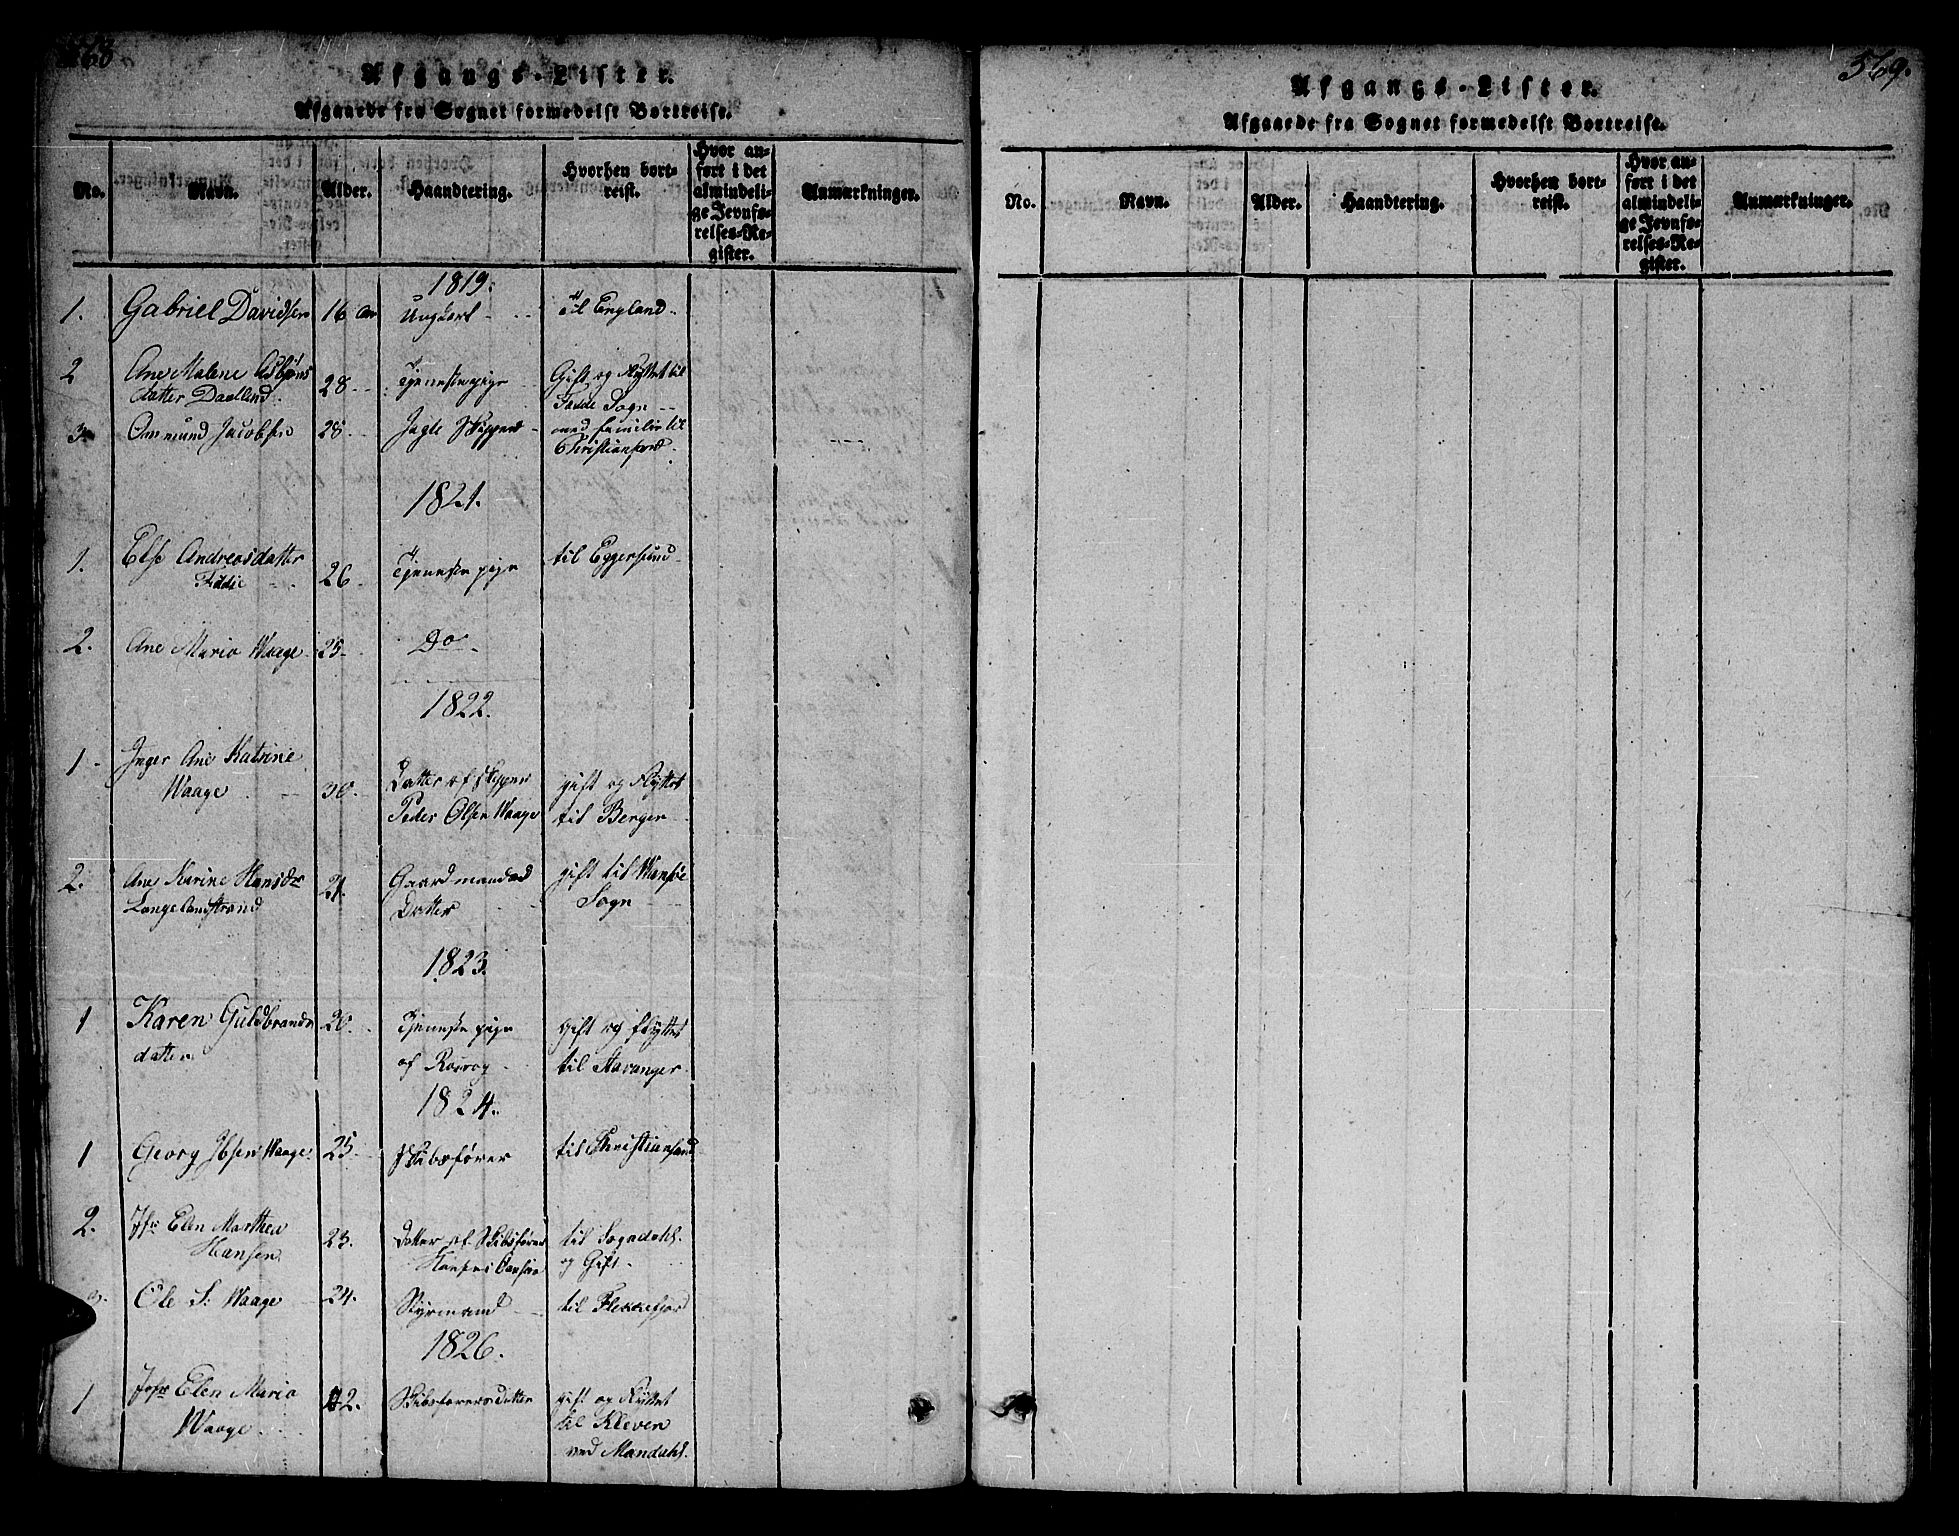 568
Afgangs-Lister.
Afgaaede fra Sognet formedelst Bortreise.
No. Navn. Alder. Haandtering. Hvorhen bort-
reist. Hvor an-
ført i det
almindeli-
ge Jevnfø-
relses-Re-
gister. Anmærkninger.
1819.
1. Gabriel Davidsen 16 Aar Ungkarl - til England.
2 Ane Malene Asbjøns
datter Daelend. 28 - Tjenestepige Gift og flyttet til
Sogn
3 Omund Jacobsen 28 - Jagte Skipper - med familie til
Christiansand.
1821.
1. Else Andreasdatter
26. Tjenestepige til Eggersund
2. Ane Maria Waage 25. Do
1822.
1 - Inger Ane Katrine
Waage 30. Datter af Skipper
Peder Olsen Waage gift og flyttet
til Bergen
2. Ane Karine Hansdr
Langelandstrand 21. Gaardmands
Datter gift til Wansøe
Sogn
1823.
1 Karen Guldbrands
datter 20. Tjenestepige
af gift og flyttet
til Stavanger.
1824.
1 Georg Ibsen Waage 25. Skibsfører til Christiansand
2. Jfr Elen Marthea
Hansen 23. Datter af Skibsfører
til Sogndahl
og Gift.
3. Ole S: Waage 24. Styrmand til Flekkefjord
1826.
1 Jfr Elen Maria
Waage 22. Skibsførers Datter gift og flyttet
til Kleven
ved Mandahl.
569.
Afgangs-Lister.
Afgaaede fra Sognet formedelst Bortreise.
No. Navn. Alder. Haandtering. Hvorhen bort-
reist. Hvor an-
ført i det
almindeli-
ge Jevnfø-
relses-Re-
gister. Anmærkninger.